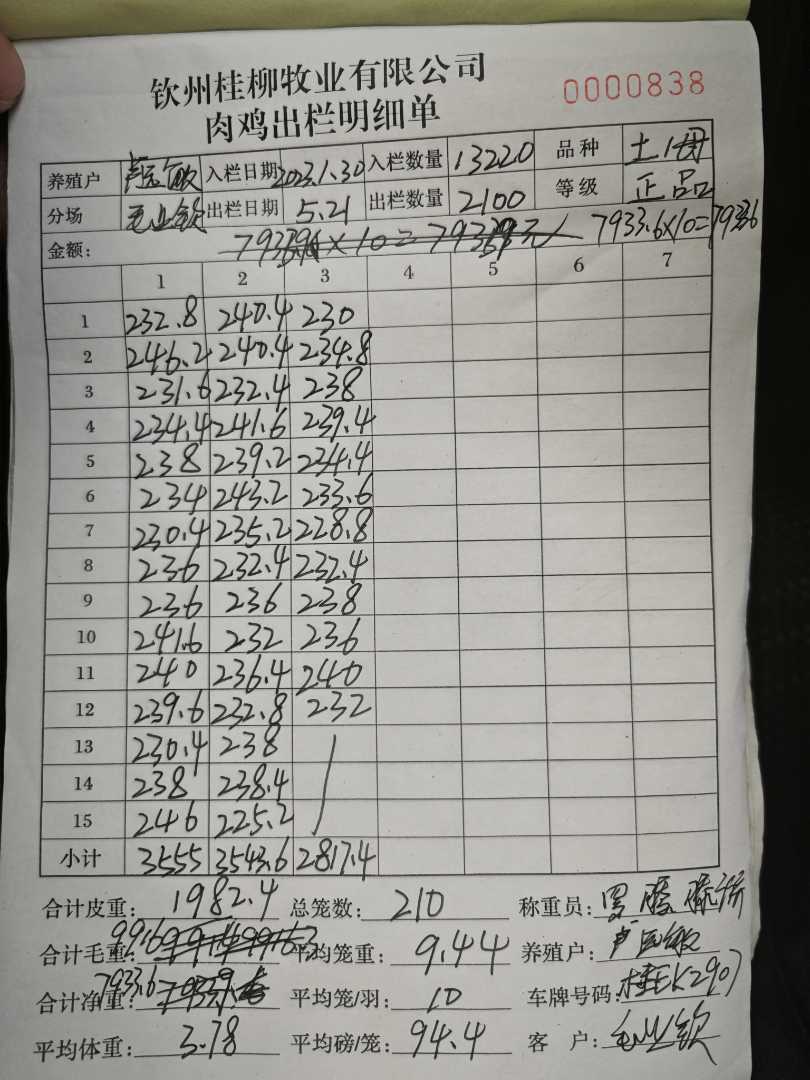 钦州桂柳牧业有限公司
肉鸡出栏明细单
0000838
养殖户 入栏日期 2023.1.30 入栏数量 13220 品种 土1
分场 毛业钦 出栏日期 5.21 出栏数量 2100 等级 正品
金额: 7933.6×10=79336
1 2 3 4 5 6 7
1 232.8 240.4 230
2 246.2 240.4 234.8
3 231.6 232.4 238
4 234.4 241.6 239.4
5 238 239.2 234.4
6 234 243.2 233.6
7 230.4 235.2 228.8
8 236 232.4 232.4
9 236 236 238
10 241.6 232 236
11 240 236.4 240
12 239.6 232.8 232
13 230.4 238
14 238 238.4
15 246 225.2
小计 3555 3543.6 2817.4
合计皮重: 1982.4 总笼数: 210 称重员:
合计毛重: 9916 平均笼重: 9.44 养殖户:
合计净重: 7933.6 平均笼/羽: 10 车牌号码: 桂EK2907
平均体重: 3.78 平均磅/笼: 94.4 客户: 毛业钦